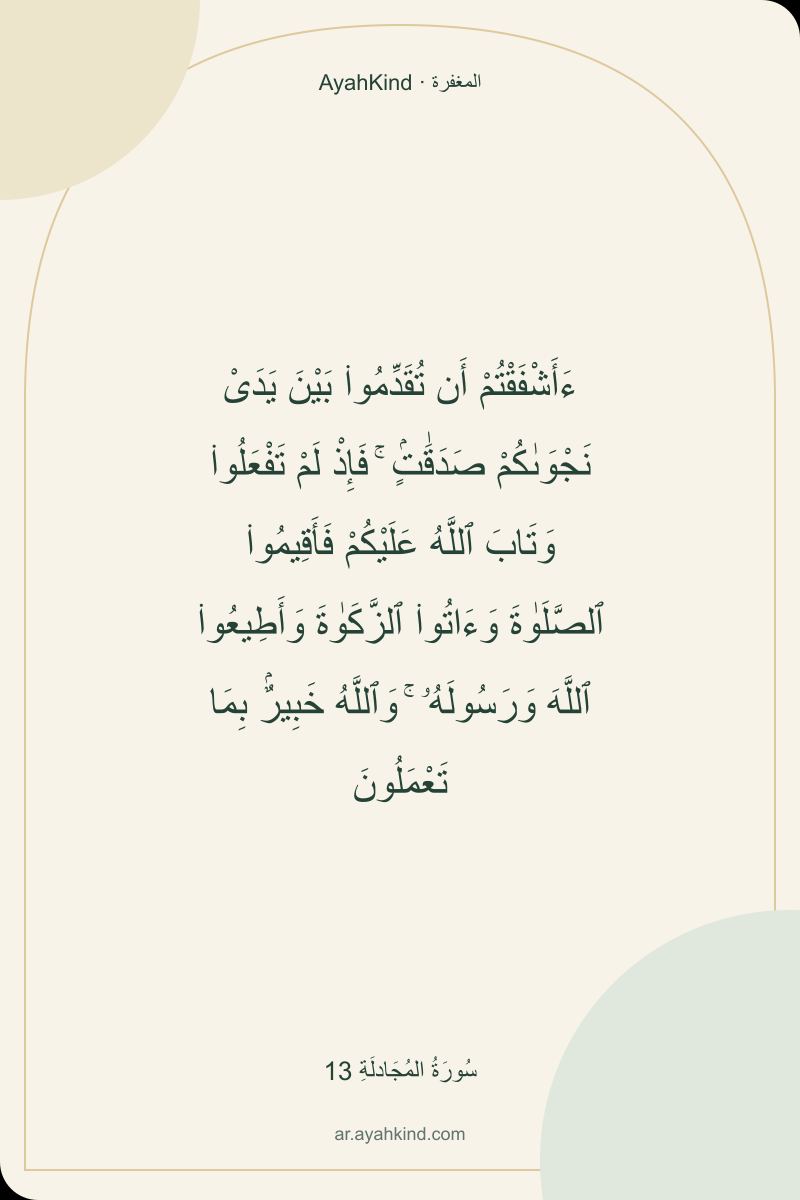 AyahKind · المغفرة
ءَأَشْفَقْتُمْ أَن تُقَدِّمُوا۟ بَيْنَ يَدَىْ
نَجْوَىٰكُمْ صَدَقَٰتٍۢ ۚ فَإِذْ لَمْ تَفْعَلُوا۟
وَتَابَ ٱللَّهُ عَلَيْكُمْ فَأَقِيمُوا۟
ٱلصَّلَوٰةَ وَءَاتُوا۟ ٱلزَّكَوٰةَ وَأَطِيعُوا۟
ٱللَّهَ وَرَسُولَهُۥ ۚ وَٱللَّهُ خَبِيرٌۢ بِمَا
تَعْمَلُونَ
سُورَةُ المُجَادلَةِ 13
ar.ayahkind.com